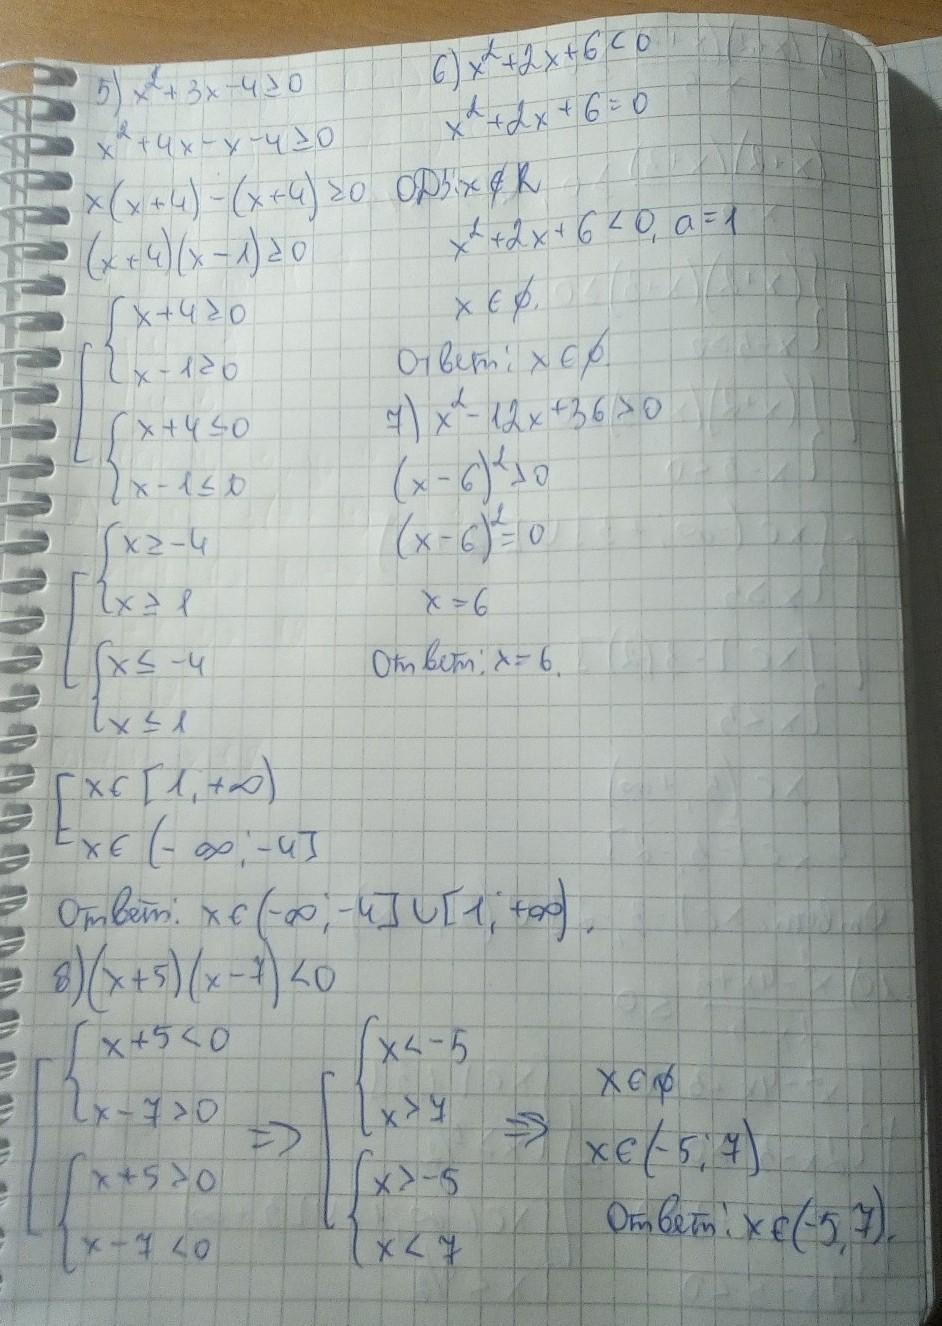 5) x²+3x-4≥0
x²+4x-x-4≥0
x(x+4)-(x+4)≥0
(x+4)(x-1)≥0
x+4≥0
x-1≥0
x+4≤0
x-1≤0
x≥-4
x≥1
x≤-4
x≤1
x∈[1,+∞)
x∈(-∞;-4]
Ответ: x∈(-∞;-4]∪[1;+∞).
6) x²+2x+6<0
x²+2x+6=0
x∉R
x²+2x+6<0, a=1
x∈∅.
Ответ: x∈∅.
7) x²-12x+36>0
(x-6)²>0
(x-6)²=0
x=6
Ответ: x=6.
8) (x+5)(x-7)<0
x+5<0
x-7>0
x+5>0
x-7<0
=>
x<-5
x>7
x>-5
x<7
=>
x∈∅
x∈(-5;7)
Ответ: x∈(-5,7).